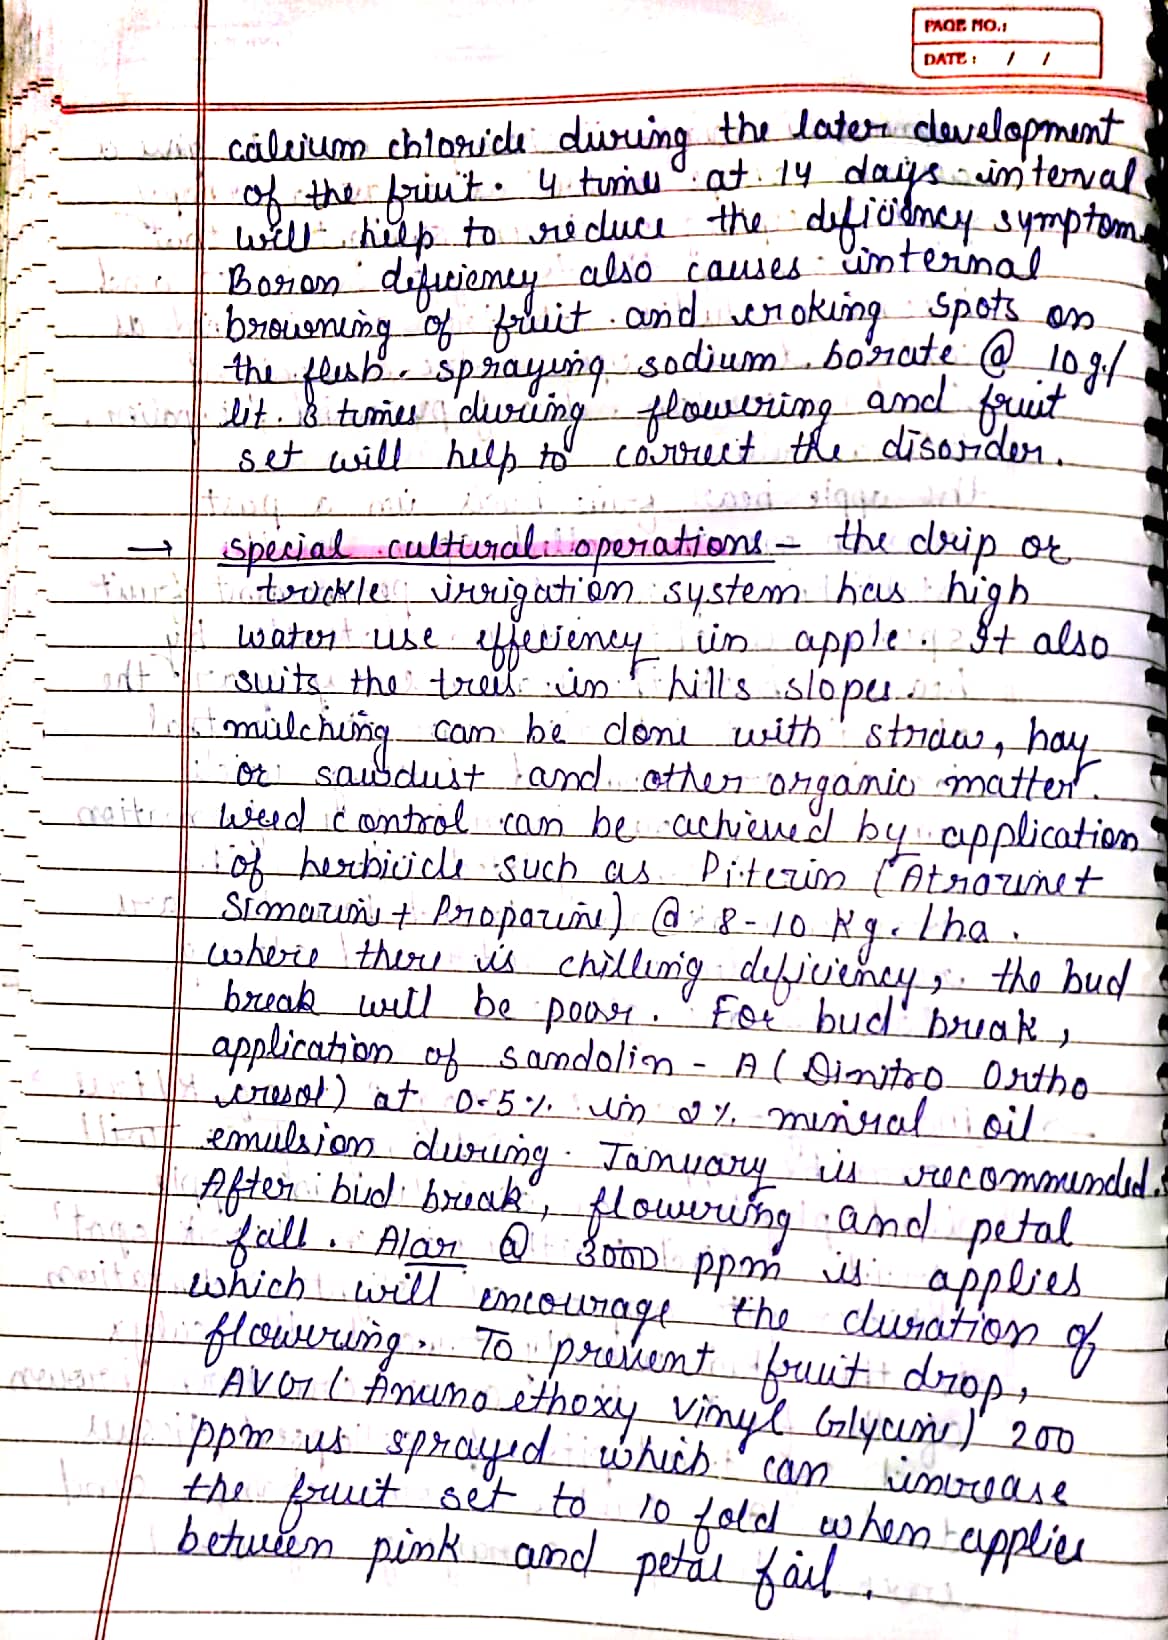 PAGE NO.:
DATE: / /
calcium chloride during the later development
of the fruit. 4 times at 14 days interval
will help to reduce the deficiency symptom.
Boron deficiency also causes internal
browning of fruit and croking spots on
the flesh. spraying sodium borate @ 10 g./
lit. 3 times during flowering and fruit
set will help to correct the disorder.
→ special cultural operations - the drip or
trickle irrigation system has high
water use effeciency in apple. It also
suits the trees in hills slopes.
mulching can be done with straw, hay
or sawdust and other organic matter.
Weed control can be achieved by application
of herbicide such as Piterin (Atrazine+
Simazin + Propazine) @ 8-10 Kg. /ha.
where there is chilling deficiency, the bud
break will be poor. For bud break,
application of sandolin - A (Dinitro Ortho
cresol) at 0.5% in 2% mineral oil
emulsion during January is recommended.
After bud break, flowering and petal
fall. Alar @ 3000 ppm is applies
which will encourage the duration of
flowering. To prevent fruit drop,
AVG (Amino ethoxy Vinyl Glycine) 200
ppm is sprayed which can increase
the fruit set to 10 fold when applies
between pink and petal fall.